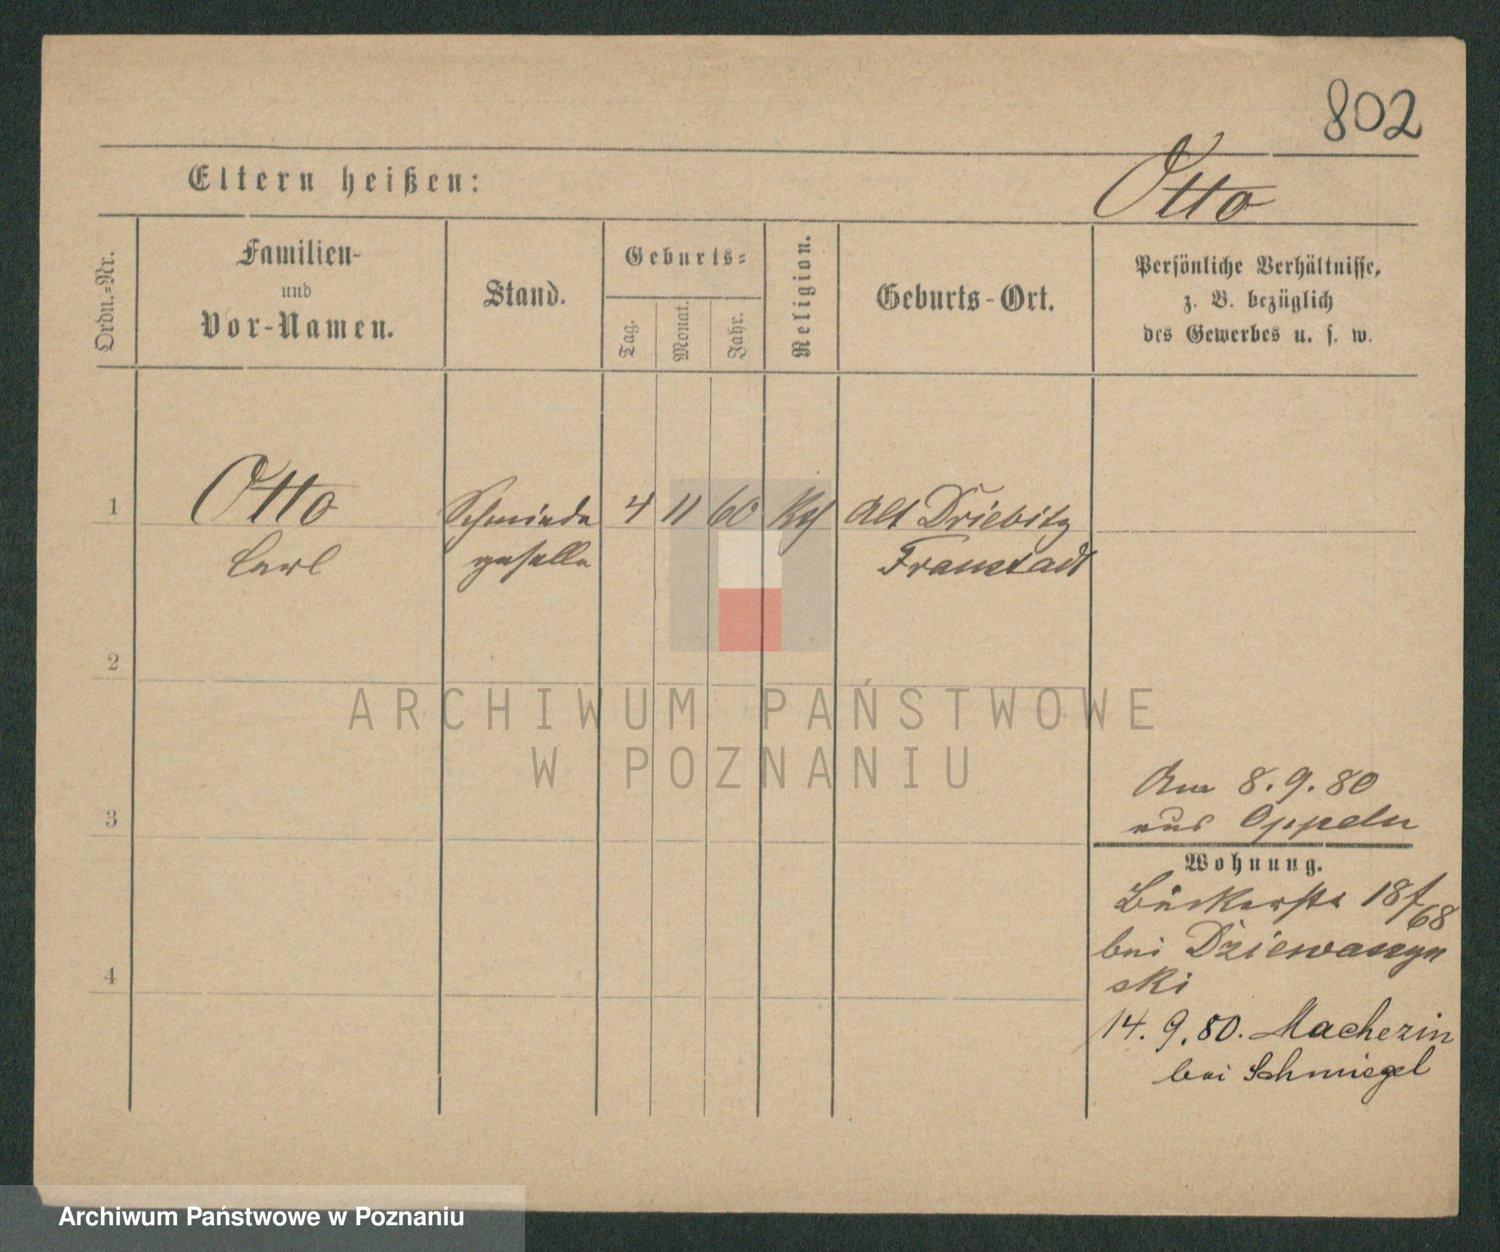 802
Eltern heißen:
Otto
Ordn.=Nr.
Familien-
und
Vor-Namen.
Stand.
Geburts=
Tag.
Monat.
Jahr.
Religion.
Geburts-Ort.
Persönliche Verhältnisse,
z. B. bezüglich
des Gewerbes u. s. w.
1
Otto
Carl
Schmiede
geselle
4 11 60
Alt Driebitz
Fraustadt
2
ARCHIWUM PAŃSTWOWE
W POZNANIU
3
Am 8.9.80
aus Oppeln
Wohnung.
Bäckerstr 18f/68
bei Dziewaszyn
ski
4
14.9.80. Machezin
bei Schmiegel
Archiwum Państwowe w Poznaniu